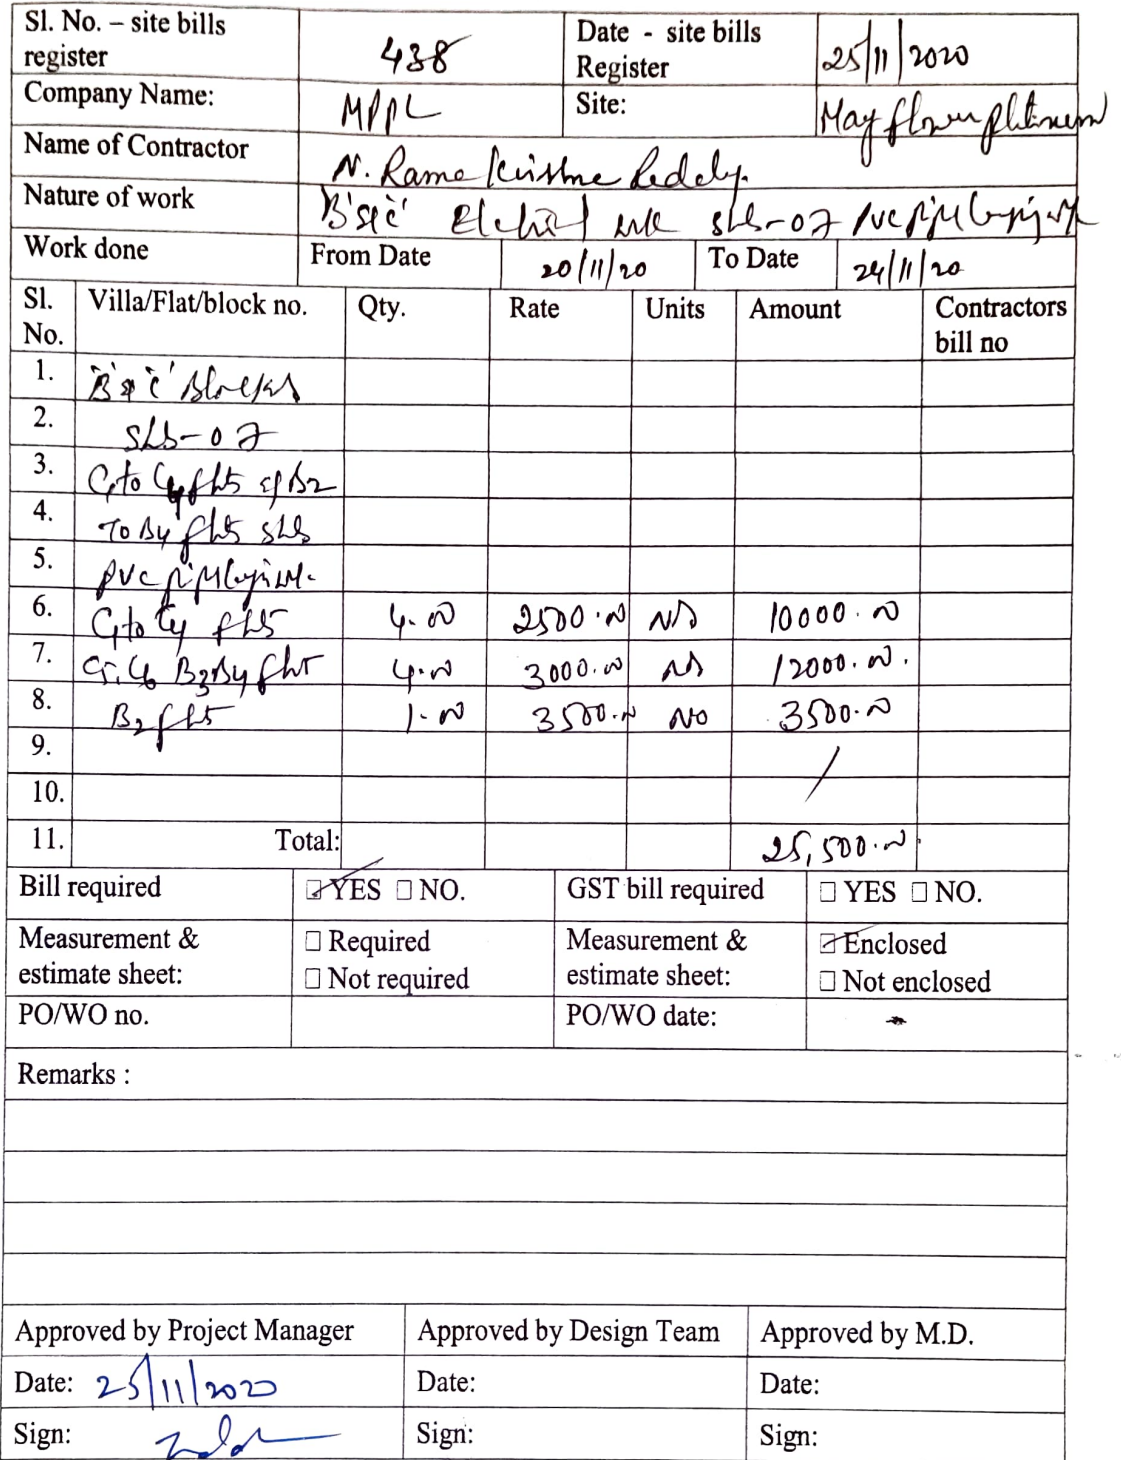 Sl. No. – site bills register 438 Date - site bills Register 25/11/2020
Company Name: MPPL Site: May flower platinum
Name of Contractor N. Rama Krishna Reddy.
Nature of work B & C Slab-07 PVC pipe
Work done From Date 20/11/20 To Date 24/11/20
Sl. No. Villa/Flat/block no. Qty. Rate Units Amount Contractors bill no
1. 'B' & 'C' Blocks
2. Slab-07
3. C1 to C4 flats & B2
4. To B4 flats slab
5. PVC pipe
6. C1 to C4 flats 4.00 2500.00 No 10000.00
7. C5, C6 B3 B4 flat 4.00 3000.00 No 12000.00.
8. B2 flat 1.00 3500.00 No 3500.00
9.
10.
11. Total: 25,500.00
Bill required ☑ YES ☐ NO. GST bill required ☐ YES ☐ NO.
Measurement & estimate sheet: ☐ Required ☐ Not required Measurement & estimate sheet: ☑ Enclosed ☐ Not enclosed
PO/WO no. PO/WO date:
Remarks :
Approved by Project Manager Approved by Design Team Approved by M.D.
Date: 25/11/2020 Date: Date:
Sign: Sign: Sign: